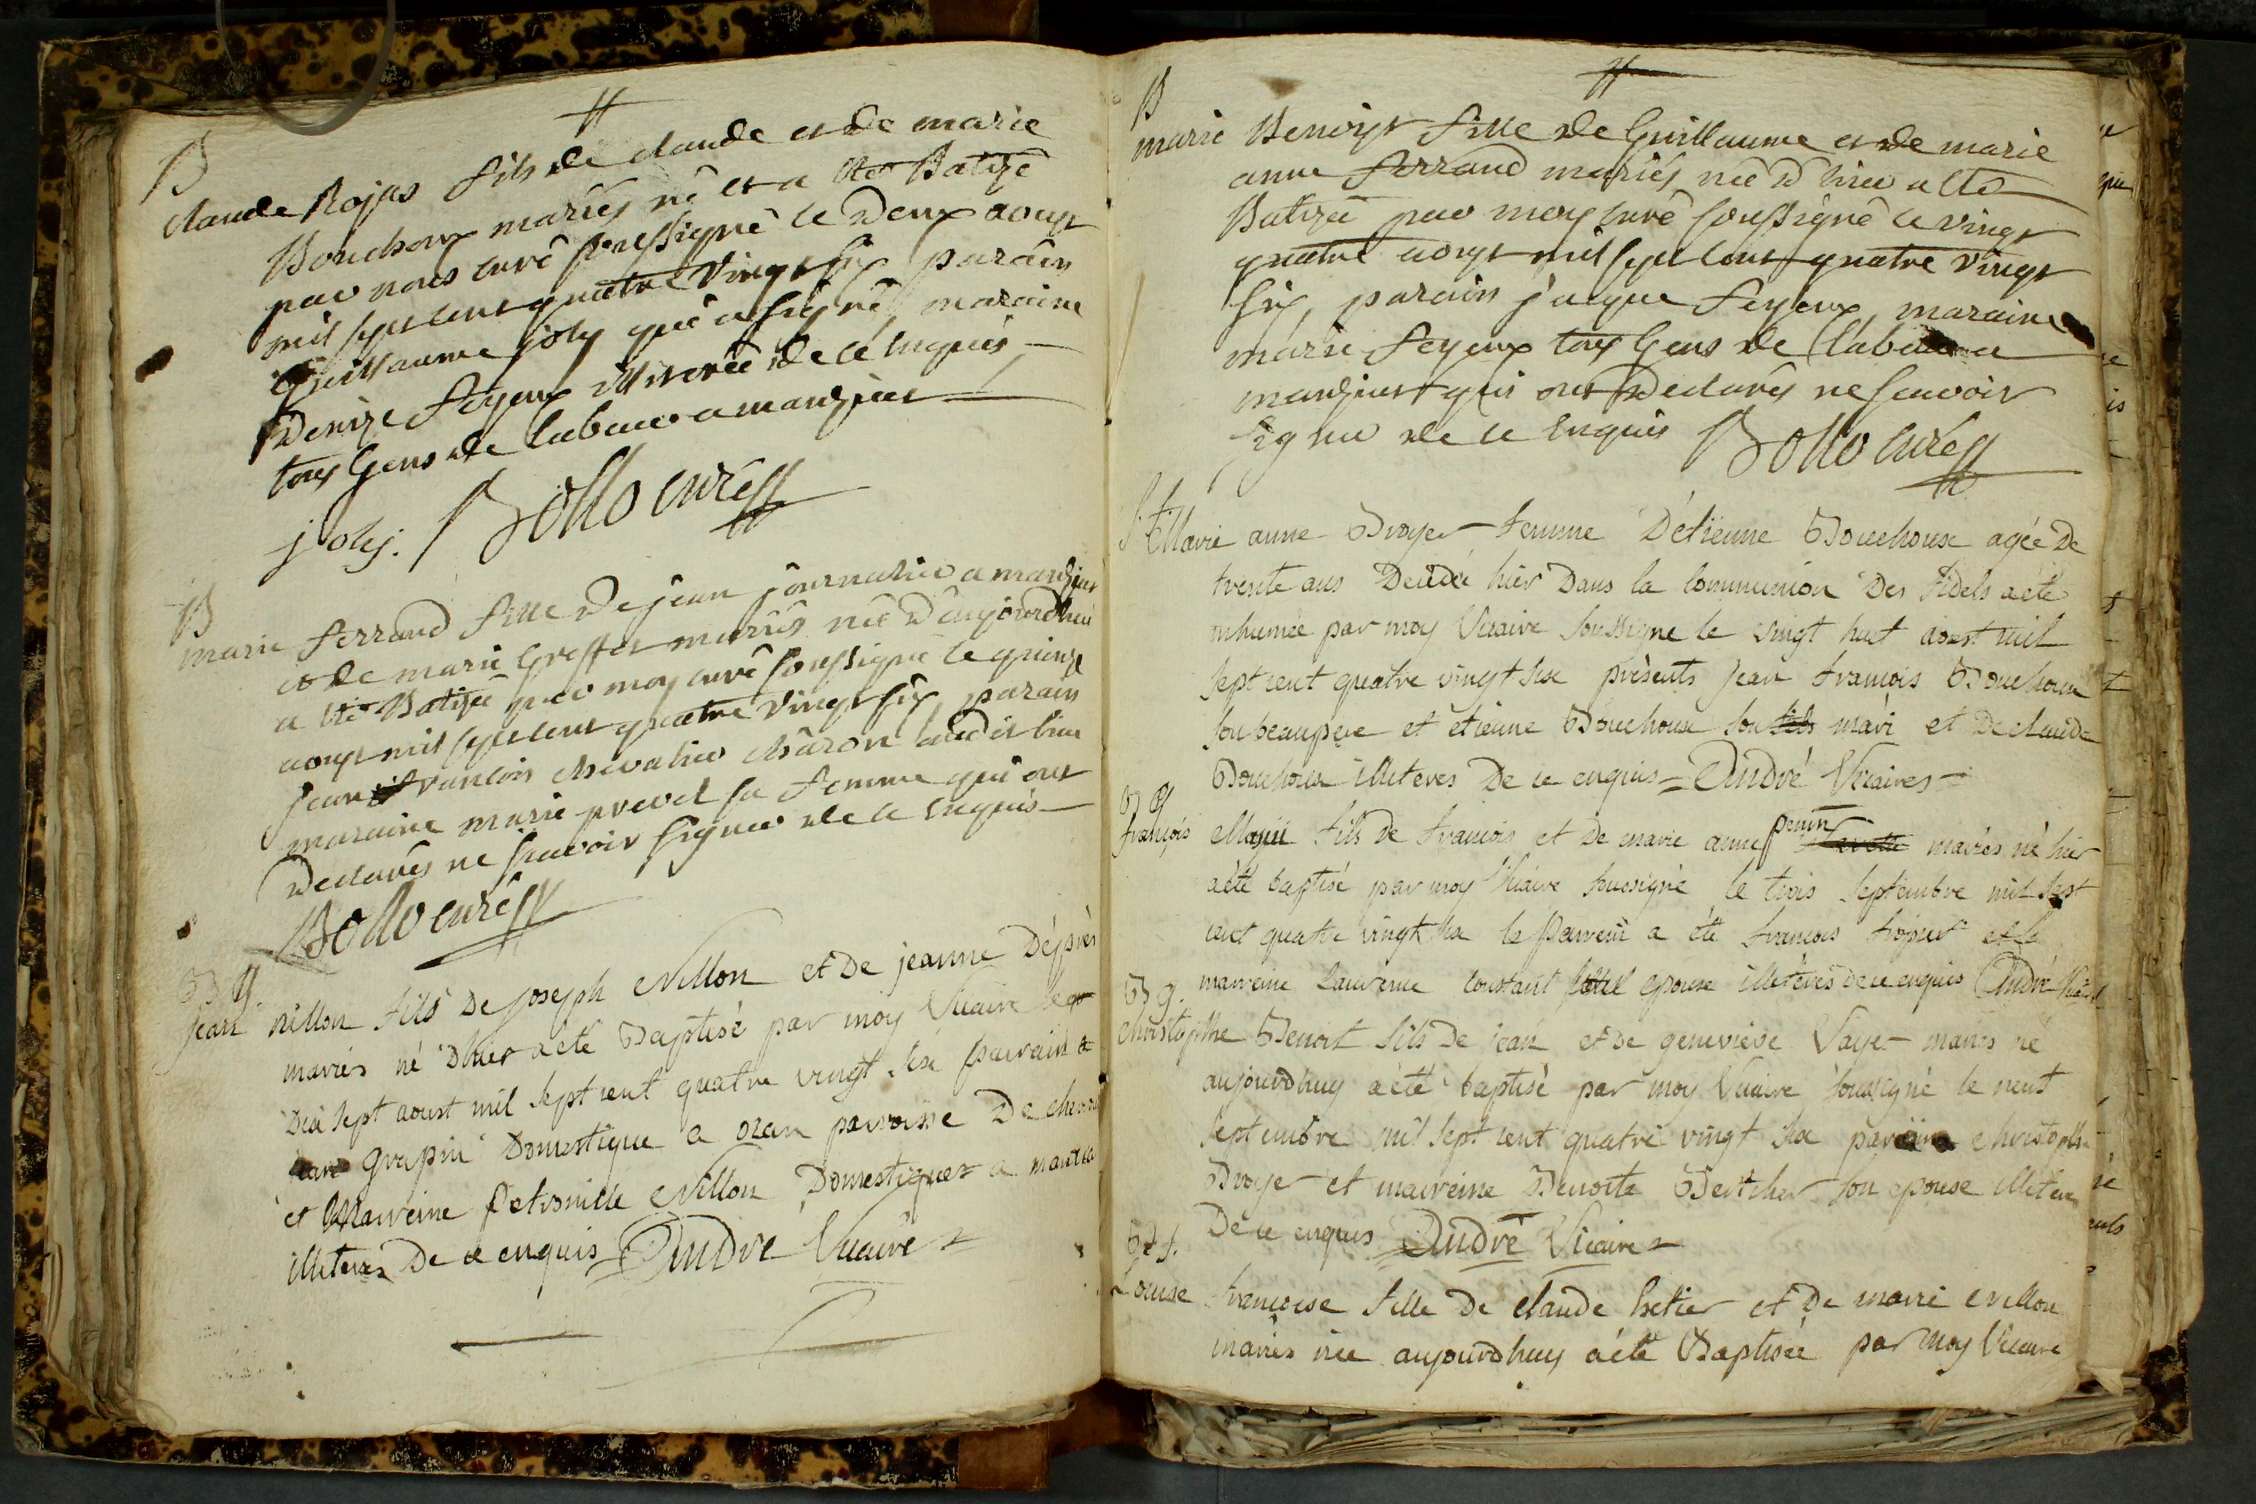 B
claude Rojas fils de claude et de marie
Bouchoux mariés né et a été Batizé
par nous curé soussigné le deux aoust
mil sept cent quatre vingt six parain
Guillaume joly qui a signé maraine
Denize feyeux illiterée de ce enquis
tous Gens de labeur a mantjeur
joly. Bollo curé
B
marie ferrand fille de jean journalier a mantjeur
et de marie Greffet mariés née d'aujourdhui
a été Batizée par moy curé soussigné le quinze
aoust mil sept cent quatre vingt six parain
jean francois chevalier charon dudit lieu
maraine marie prevel sa femme qui ont
Declarés ne scavoir signer de ce enquis
Bollo curé
B g.
jean nillon fils De joseph Nillon et De jeanne
mariés né D'hier a été Baptisé par moy Vicaire le
Dix sept aoust mil sept cent quatre vingt six parrain
grapin Domestique a ozan parroisse De
et Marreine petronille Nillon Domestiques a
illiteres De ce enquis André Vicaire
B
marie Benoist fille de Guillaume et de marie
anne ferrand mariés née d'hier a été
Batizée par moy curé soussigné le vingt
quatre aoust mil sept cent quatre vingt
six, parain jacque feyeux, maraine
marie feyeux tous Gens de labeur a
mantjeur qui ont Declarés ne scavoir
signer de ce enquis Bollo curé
Marie anne Broyer femme D'étienne Bouchoux agée De
trente ans Decedée hier Dans la Communion Des fidels a été
inhumée par moy Vicaire soussigné le vingt huit aoust mil
sept cent quatre vingt six présents jean francois Bouchoux
son beaupere et etienne Bouchoux son fils mari et De claude
Bouchoux illiteres De ce enquis André Vicaire
B g
françois fils De francois et De marie anne perrin mariés né hier
a été baptisé par moy Vicaire soussigné le trois septembre mil sept
cent quatre vingt six le parrein a été francois et la
marreine constant epouse illiteres de ce enquis André
B g.
christophe Benoit fils De jean et De genevieve Vaye mariés né
aujourdhuy a été baptisé par moy Vicaire soussigné le neuf
septembre mil sept cent quatre vingt six christophe
Broyer et marreine Benoite son epouse
De ce enquis André Vicaire
B f.
Louise francoise fille De claude et De marie Nillon
mariés née aujourdhuy a été Baptisée par moy Vicaire